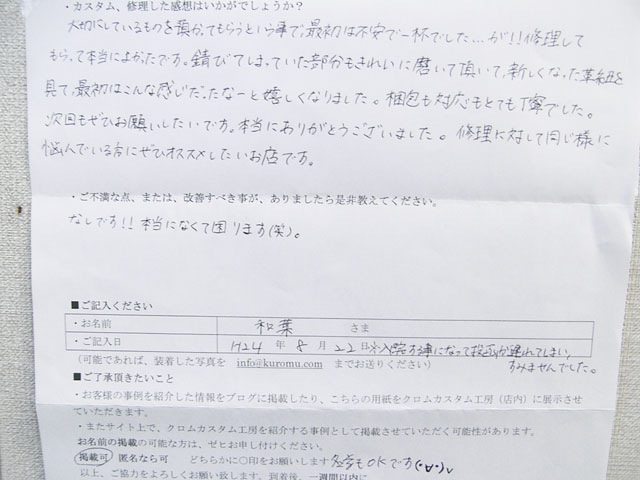 ・カスタム、修理した感想はいかがでしょうか?
大切にしているものを預かってもらうという事で、最初は不安で一杯でした…が!!修理して
もらって本当によかったです。錆びてしまっていた部分もきれいに磨いて頂いて、新しくなった革紐を
見て、最初はこんな感じだったなーと嬉しくなりました。梱包も対応もとても丁寧でした。
次回もぜひお願いしたいです。本当にありがとうございました。修理に対して同じ様に
悩んでいる方にぜひオススメしたいお店です。
・ご不満な点、または、改善すべき事が、ありましたら是非教えてください。
なしです!!本当になくて困ります(笑)。
■ご記入ください
・お名前 和葉 さま
・ご記入日 H24 年 8 月 22 日 ※入院する事になって投函が遅れてしまい、
すみませんでした。
(可能であれば、装着した写真を info@kuromu.com までお送りください)
■ご了承頂きたいこと
・お客様の事例を紹介した情報をブログに掲載したり、こちらの用紙をクロムカスタム工房(店内)に展示させ
ていただきます。
・またサイト上で、クロムカスタム工房を紹介する事例として掲載させていただく可能性があります。
お名前の掲載の可能な方は、ゼヒお申し付けください。
掲載可 匿名なら可 どちらかに○印をお願いします 名字もOKです(・∀・)v
以上、ご協力をよろしくお願い致します。到着後、一週間以内に